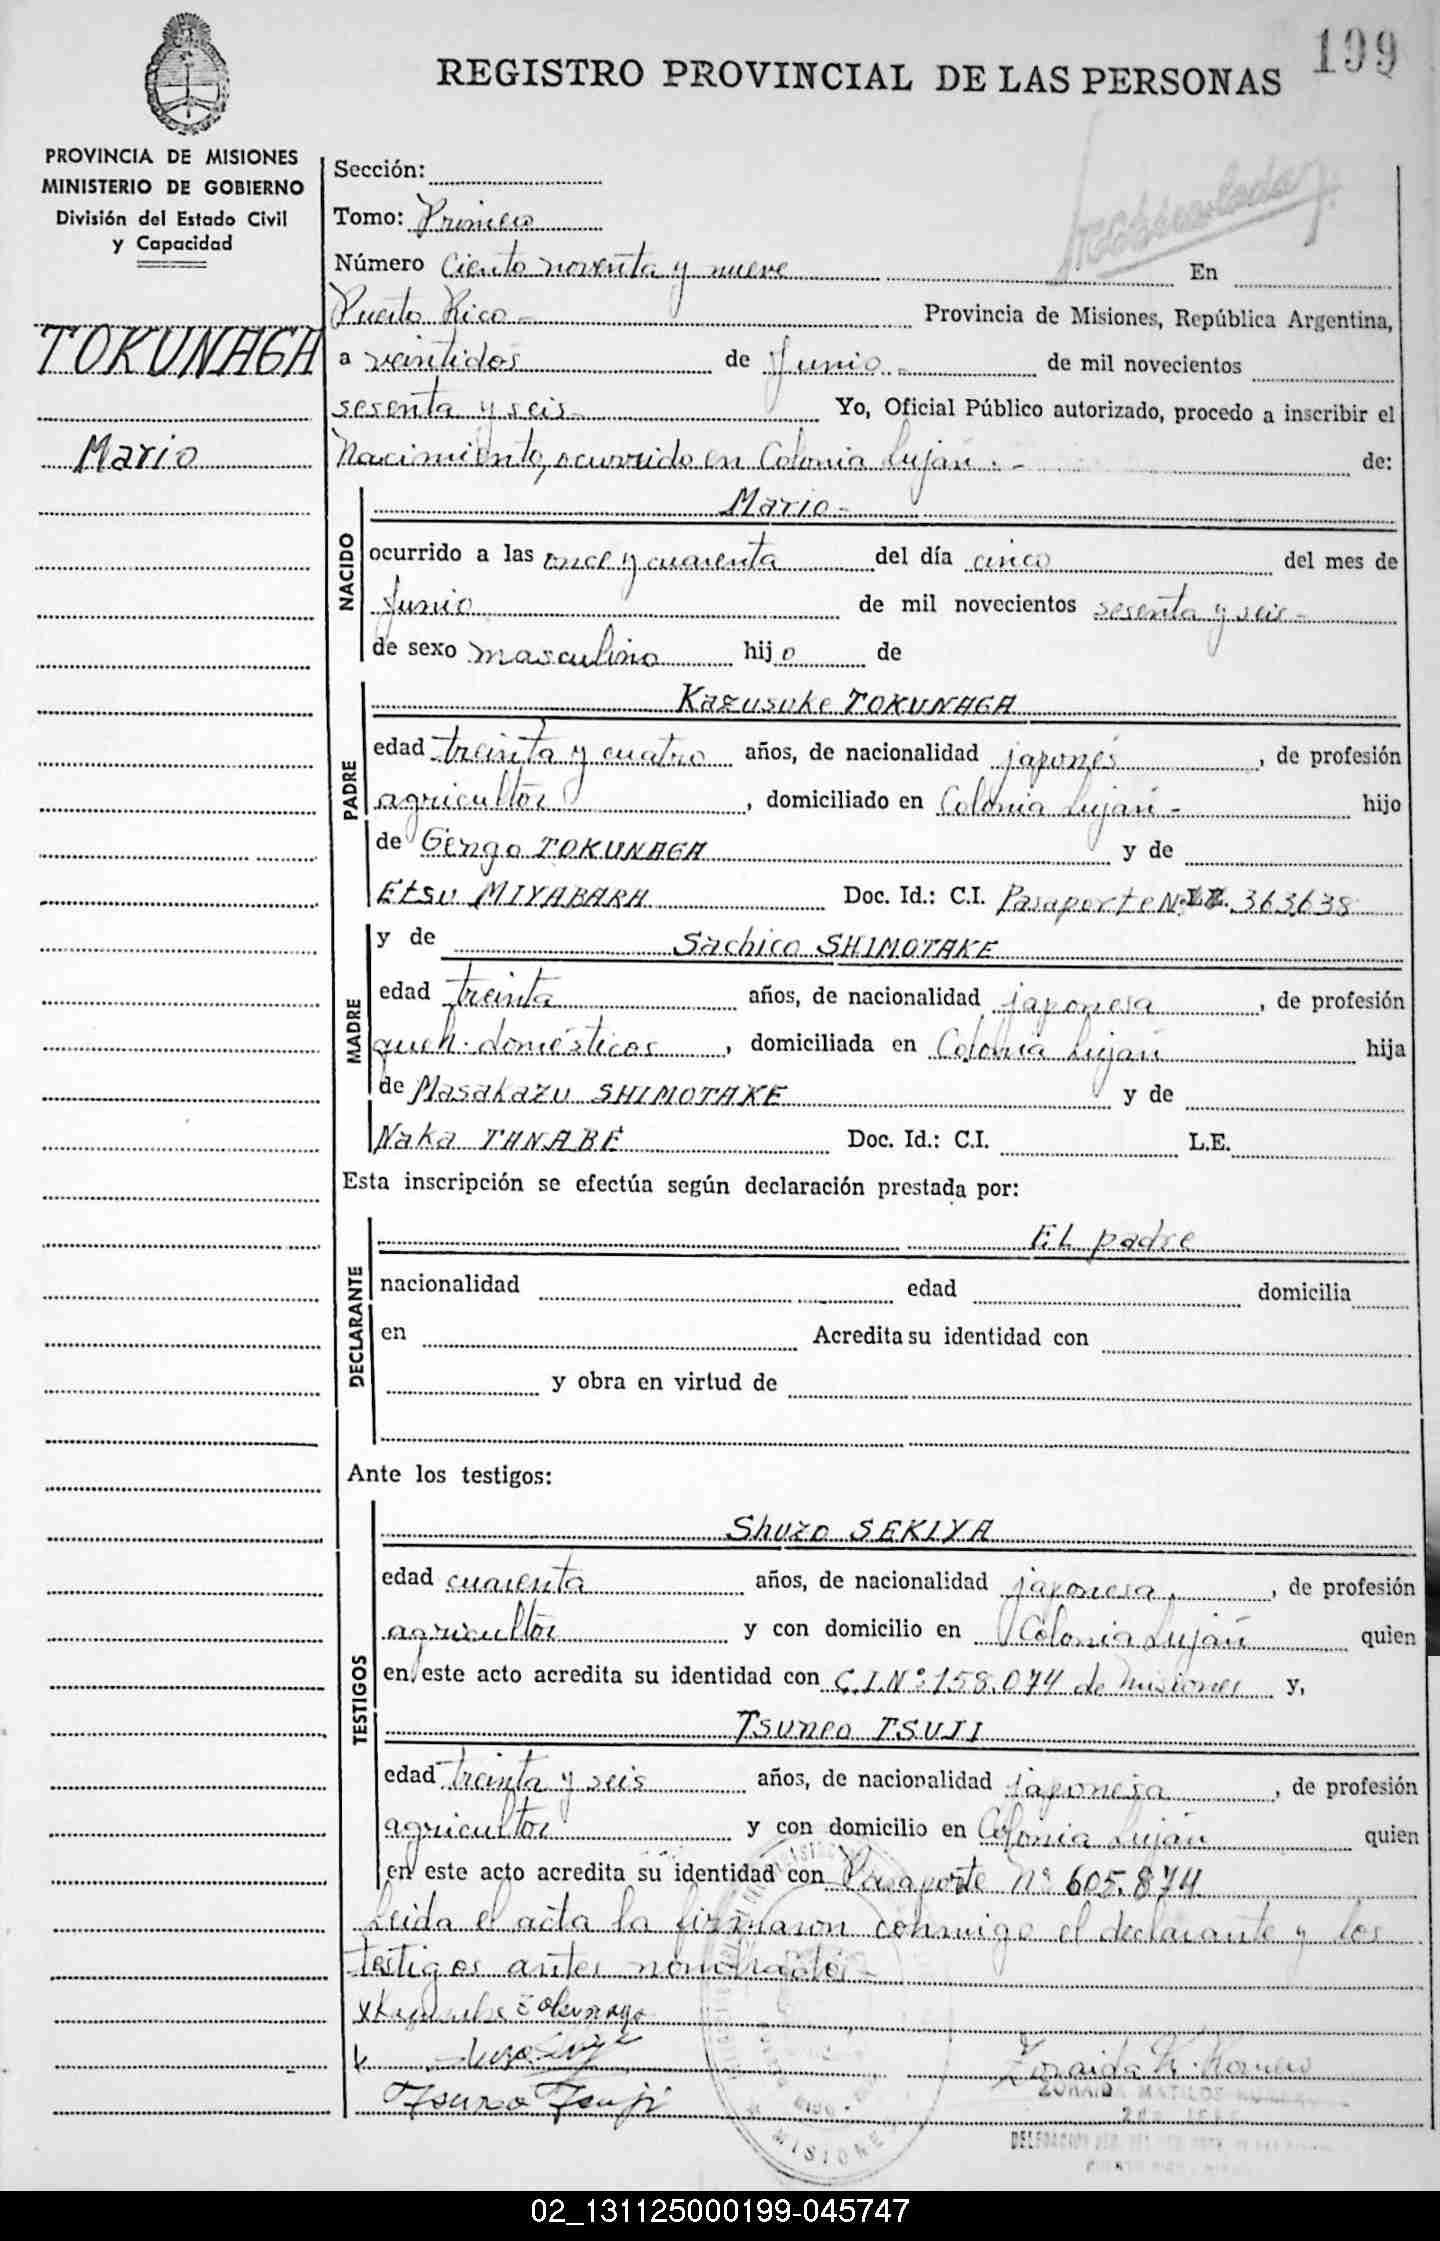 199
REGISTRO PROVINCIAL DE LAS PERSONAS
PROVINCIA DE MISIONES
MINISTERIO DE GOBIERNO
División del Estado Civil
y Capacidad
TOKUNAGA
Mario
Sección:
Tomo: Primero
Número Ciento noventa y nueve En
Puerto Rico - Provincia de Misiones, República Argentina,
a veintidos de Junio - de mil novecientos
sesenta y seis - Yo, Oficial Público autorizado, procedo a inscribir el
Nacimiento, ocurrido en Colonia Luján . - de:
NACIDO
Mario -
ocurrido a las once y cuarenta del día cinco del mes de
Junio de mil novecientos sesenta y seis -
de sexo masculino hijo de
PADRE
Kazusuke TOKUNAGA
edad treinta y cuatro años, de nacionalidad japonés, de profesión
agricultor, domiciliado en Colonia Luján - hijo
de Gengo TOKUNAGA y de
Etsu MIYABARA Doc. Id.: C.I. Pasaporte N. 363638
MADRE
y de Sachico SHIMOTAKE
edad treinta años, de nacionalidad japonesa, de profesión
queh. domésticos, domiciliada en Colonia Luján hija
de Masakazu SHIMOTAKE y de
Naka TANABE Doc. Id.: C.I. L.E.
Esta inscripción se efectúa según declaración prestada por:
DECLARANTE
EL padre
nacionalidad edad domicilia
en Acredita su identidad con
y obra en virtud de
Ante los testigos:
TESTIGOS
Shuzo SEKIYA
edad cuarenta años, de nacionalidad japonesa, de profesión
agricultor y con domicilio en Colonia Luján quien
en este acto acredita su identidad con C.I.Nº:158.074 de Misiones y,
Tsuneo TSUJI
edad treinta y seis años, de nacionalidad japonesa, de profesión
agricultor y con domicilio en Colonia Luján quien
en este acto acredita su identidad con Pasaporte Nº 605.874
Leida el acta la firmaron conmigo el declarante y los
testigos antes nombrados -
Tsuneo Tsuji
Zoraida M. Romero
ZORAIDA
MISIONES
02_131125000199-045747